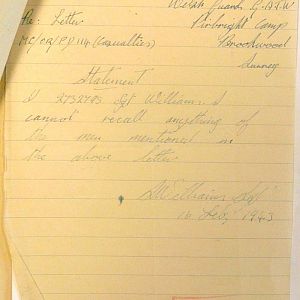 Welsh Guards
Re: Letter Pirbright Camp
MC/CR/PP 114 (Casualties) Brookwood
Surrey
Statement
I 2732783 Sgt Williams. I
cannot recall anything of
the men mentioned in
the above letter
Williams Sgt
16 1943